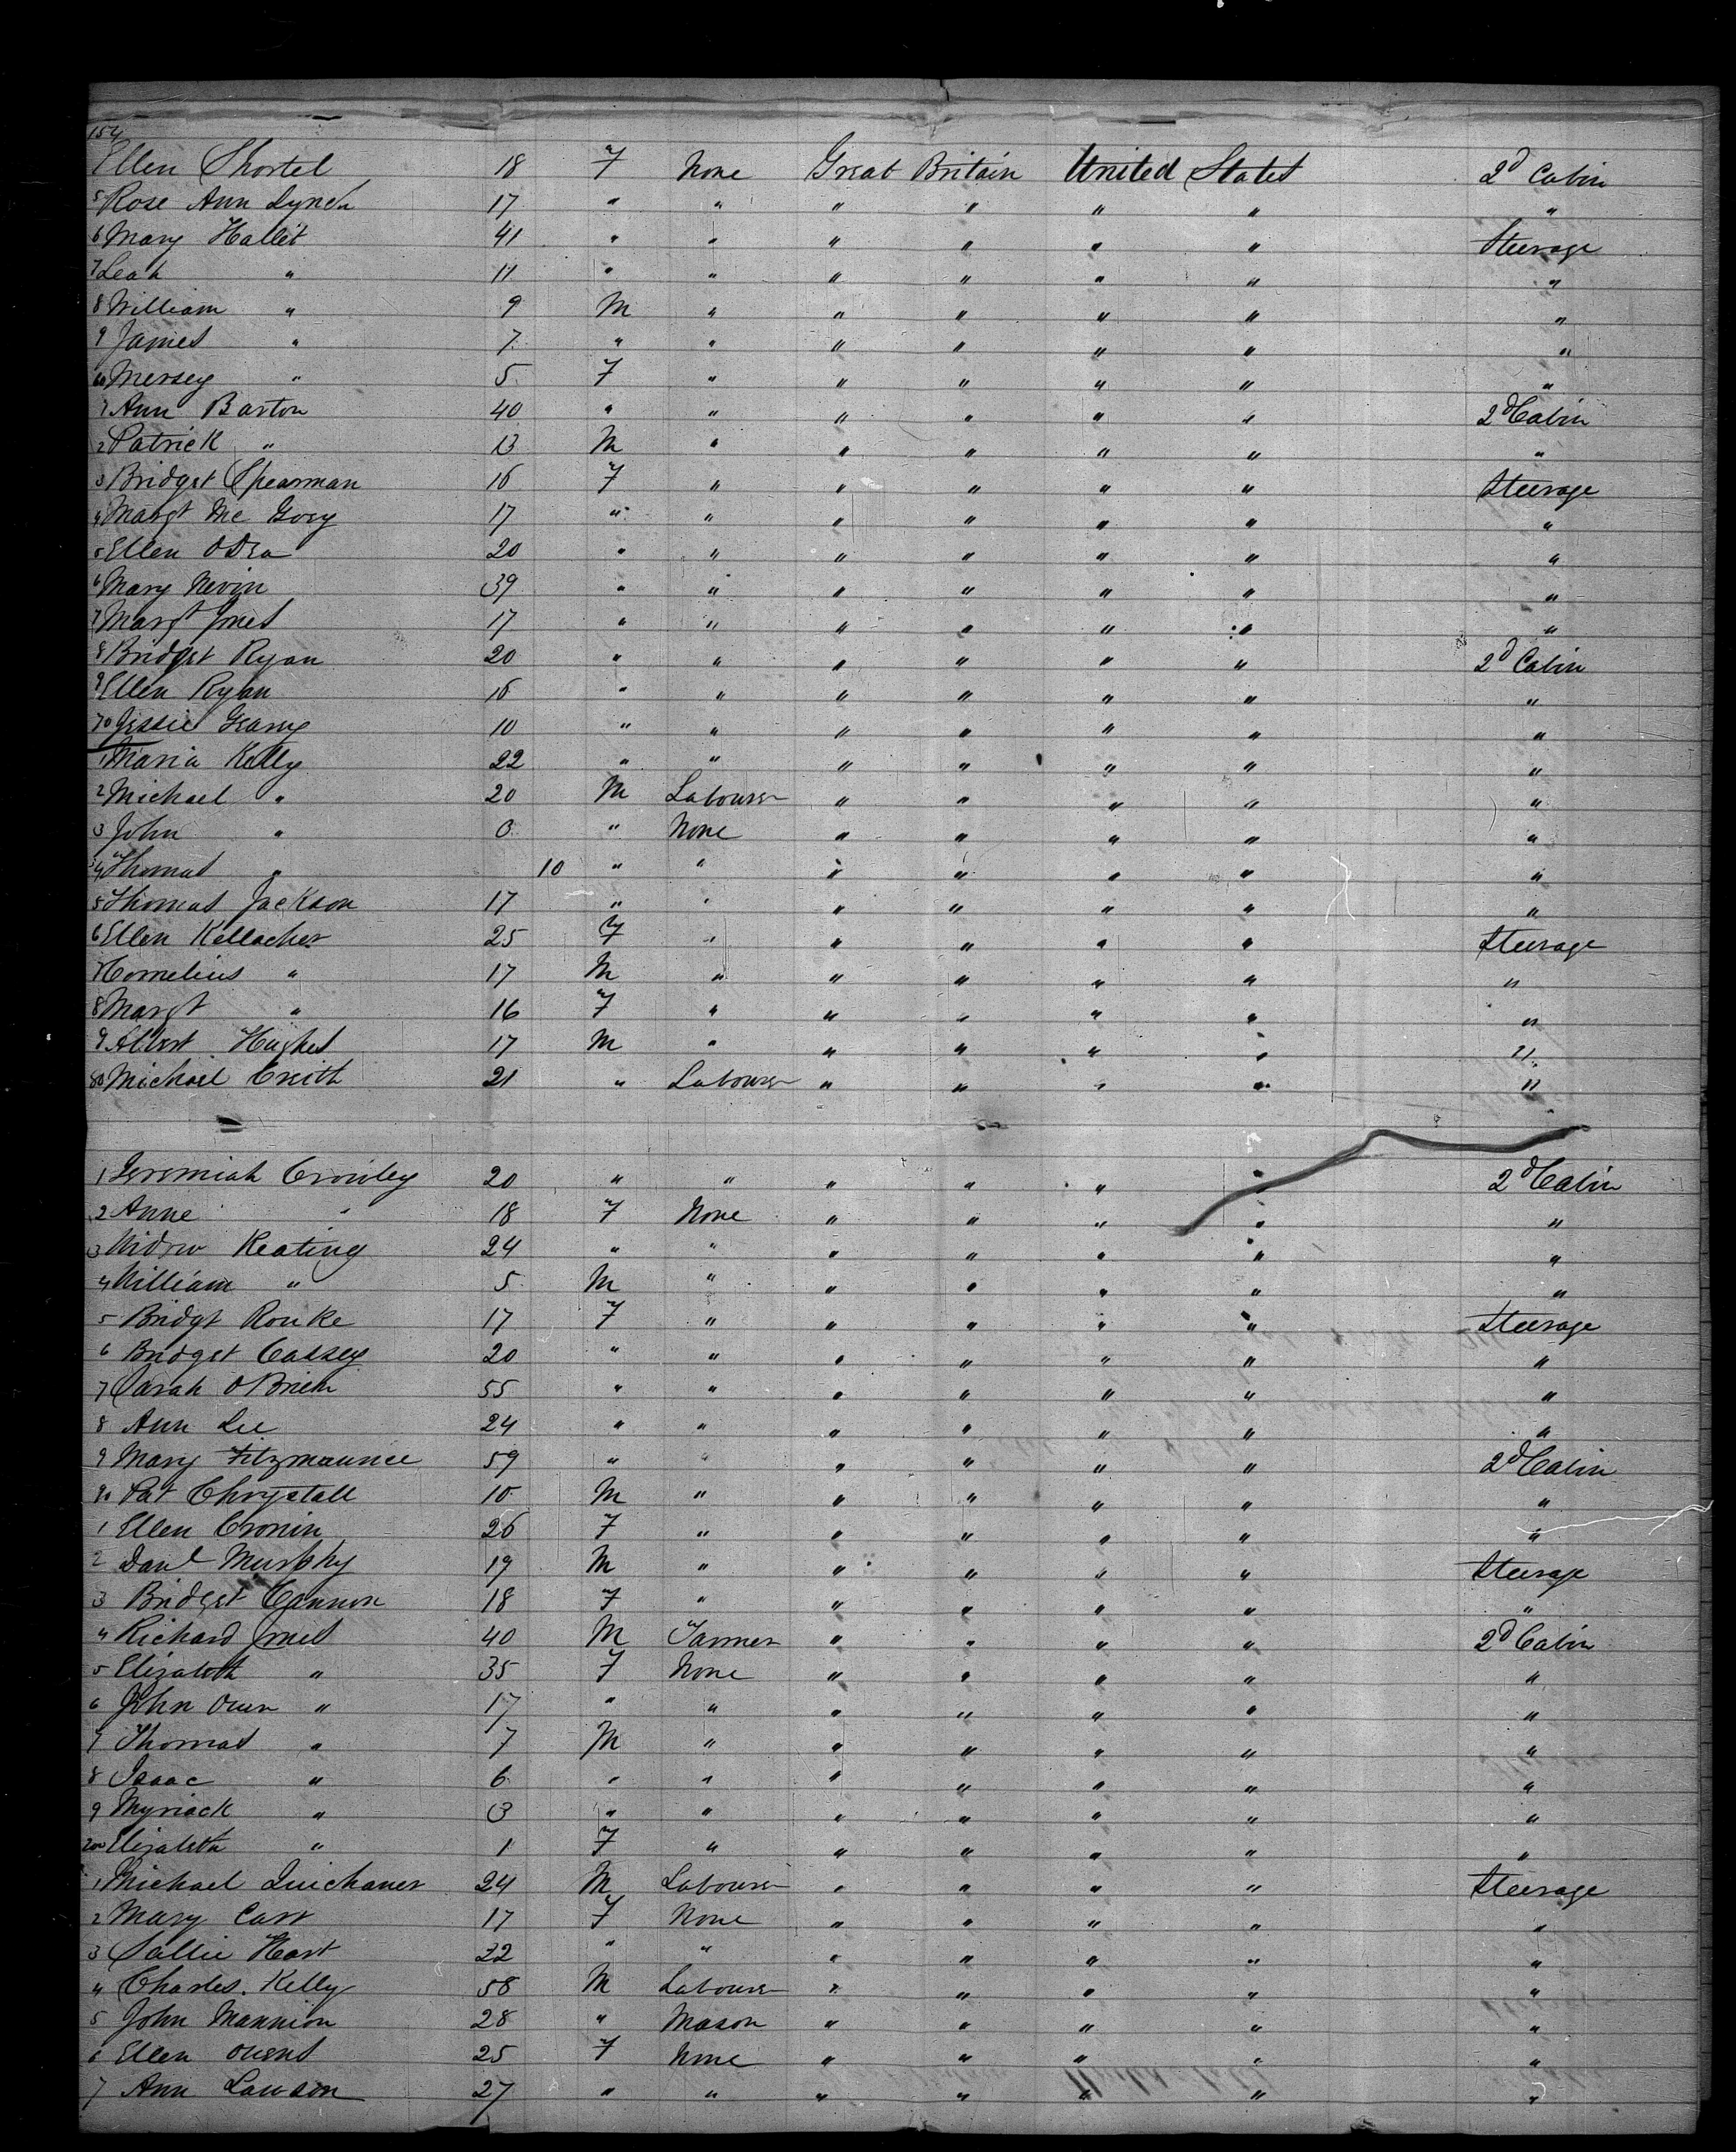 154
Ellen Shortel 18 F None Great Britain United States 2d Cabin
5 Rose Ann Lynch 17 " " " " " " "
6 Mary Hallet 41 " " " " " " Steerage
7 Leah " 11 " " " " " " "
8 William " 9 M " " " " " "
9 James " 7 " " " " " " "
60 Mersey " 5 F " " " " " "
1 Ann Barton 40 " " " " " " 2d Cabin
2 Patrick " 13 M " " " " " "
3 Bridget Spearman 16 F " " " " " Steerage
4 Margt Mc Govy 17 " " " " " " "
5 Ellen ODea 20 " " " " " " "
6 Mary Nevin 39 " " " " " " "
7 Margt Jones 17 " " " " " " "
8 Bridget Ryan 20 " " " " " " 2d Cabin
9 Ellen Ryan 16 " " " " " " "
70 Jessie Geary 10 " " " " " " "
1 Maria Kelly 22 " " " " " " "
2 Michael " 20 M Labourer " " " " "
3 John " 3 " None " " " " "
4 Thomas " 10 " " " " " " "
5 Thomas Jackson 17 " " " " " " "
6 Ellen Kellacher 25 F " " " " " Steerage
7 Cornelius " 17 M " " " " " "
8 Margt " 16 F " " " " " "
9 Albert Hughes 17 M " " " " " "
80 Michael Creith 21 " Labourer " " " " "
1 Jeremiah Crowley 20 " " " " " " 2d Cabin
2 Anne " 18 F None " " " " "
3 Keating 24 " " " " " " "
4 William " 5 M " " " " " "
5 Bridgt Rouke 17 F " " " " " Steerage
6 Bridget Cassey 20 " " " " " " "
7 Sarah OBrien 55 " " " " " " "
8 Ann Lee 24 " " " " " " "
9 Mary Fitzmaurice 59 " " " " " " 2d Cabin
90 Pat Chrystall 10 M " " " " " "
1 Ellen Cronin 26 F " " " " " "
2 Danl Murphy 19 M " " " " " Steerage
3 Bridget Cannon 18 F " " " " " "
4 Richard Jones 40 M Farmer " " " " 2d Cabin
5 Elizabeth " 35 F None " " " " "
6 John Owen " 17 " " " " " " "
7 Thomas " 7 M " " " " " "
8 Isaac " 6 " " " " " " "
9 Myriack " 3 " " " " " " "
200 Elizabeth " 1 F " " " " " "
1 Michael 24 M Labourer " " " " Steerage
2 Mary Carr 17 F None " " " " "
3 Sallie Hart 22 " " " " " " "
4 Charles. Kelly 58 M Labourer " " " " "
5 John Mannion 28 " Mason " " " " "
6 Ellen Owens 25 F None " " " " "
7 Ann Lawson 27 " " " " " " "